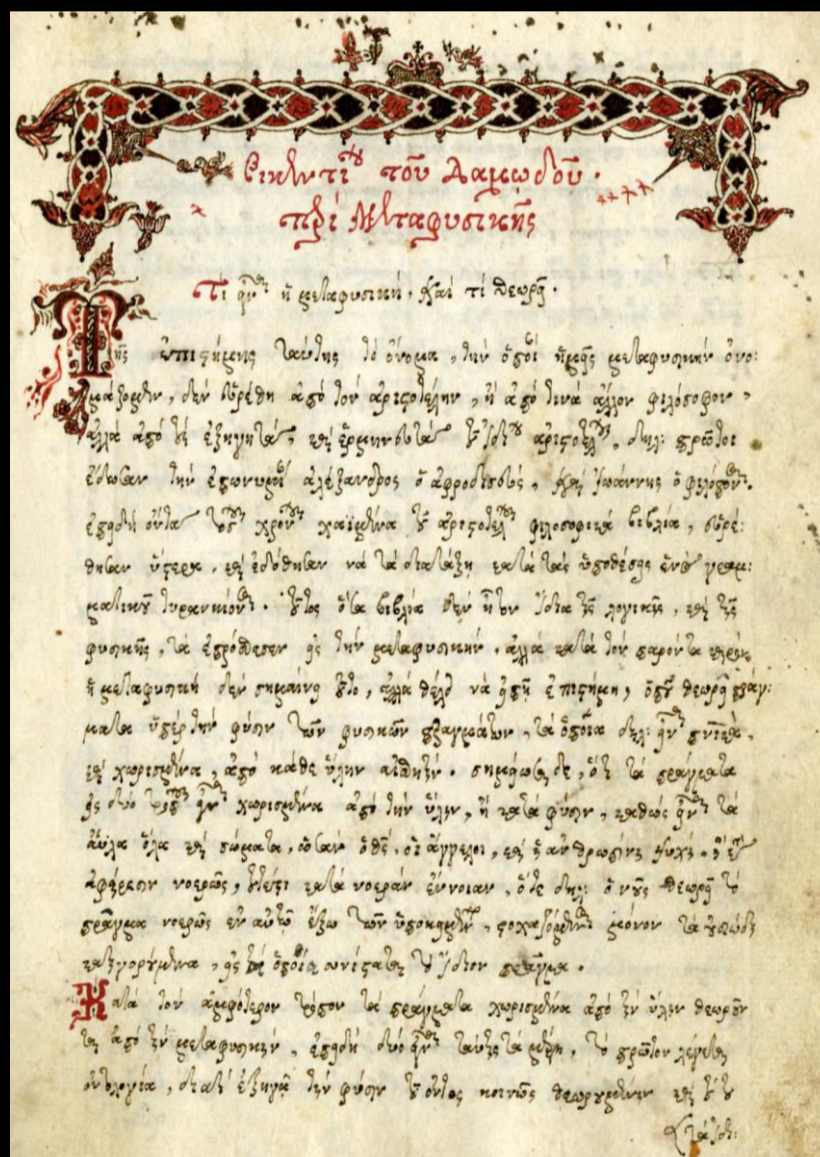 Βικεντίου τοῦ Δαμωδοῦ.
περὶ Μεταφυσικῆς
Τί εἶναι ἡ μεταφυσική, καὶ τί θεωρεῖ.
Τῆς ἐπιστήμης ταύτης τὸ ὄνομα, τὴν ὁποίαν ἡμεῖς μεταφυσικὴν ὀνο:
μάζομεν, δὲν εὑρέθη ἀπὸ τὸν ἀριστοτέλην, ἢ ἀπὸ τινὰ ἄλλον φιλόσοφον,
ἀλλὰ ἀπὸ τοὺς ἐξηγητάς, καὶ ἑρμηνευτὰς τοῦ ἰδίου ἀριστοτέλους, δηλ: πρῶτοι
ἔδωσαν τὴν ἐπωνυμίαν ἀλέξανδρος ὁ ἀφροδισεύς, καὶ ἰωάννης ὁ φιλόπονος.
ἐπειδὴ ὄντας τοῦ χρόνου χαϊμένα τοῦ ἀριστοτέλους φιλοσοφικὰ βιβλία, εὑρέ:
θησαν ὕστερα, καὶ ἐδόθησαν νὰ τὰ διατάξῃ κατὰ τὰς ὑποθέσεις ἑνὸς γραμ:
ματικοῦ τυραννίονος. οὗτος ὅσα βιβλία δὲν ἦτον ἴδια τῆς λογικῆς, καὶ τῆς
φυσικῆς, τὰ ἐπρόσθεσεν εἰς τὴν μεταφυσικήν. ἀλλὰ κατὰ τὸν παρόντα καιρὸν
ἡ μεταφυσικὴ δὲν σημαίνει τοῦτο, ἀλλὰ θέλει νὰ εἰπῇ ἐπιστήμη, ὁποῦ θεωρεῖ πράγ:
ματα ὑπὲρ τὴν φύσιν τῶν φυσικῶν πραγμάτων, τὰ ὁποῖα δηλ: εἶναι πνευματικά,
καὶ χωρισμένα, ἀπὸ κάθε ὕλην αἰσθητήν. σημείωσαι δέ, ὅτι τὰ πράγματα
εἰς δύο τρόπους εἶναι χωρισμένα ἀπὸ τὴν ὕλην, ἢ κατὰ φύσιν, καθὼς εἶναι τὰ
ἄϋλα ὅλα καὶ σώματα, ὡσὰν ὁ θεός, οἱ ἄγγελοι, καὶ ἡ ἀνθρωπίνη ψυχή. ἢ κατ'
ἀφαίρεσιν νοερῶς, ἤγουν κατὰ νοερὰν ἔννοιαν, ὅτε δηλ: ὁ νοῦς θεωρεῖ τὸ
πρᾶγμα νοερῶς ἐν αὐτῷ ἔξω τῶν ὑποκειμένων, στοχαζόμενος μόνον τὰ οὐσιώδη
κατηγορούμενα, εἰς τὰ ὁποῖα συνίσταται τὸ ἴδιον πρᾶγμα.
Κατὰ τὸν ἀμφότερον τρόπον τὰ πράγματα χωρισμένα ἀπὸ τὴν ὕλην θεωροῦν
ται ἀπὸ τὴν μεταφυσικήν, ἐπειδὴ δύο εἶναι ταύτης τὰ μέρη, τὸ πρῶτον λέγεται
ὀντολογία, διατὶ ἐξηγᾷ τὴν φύσιν τοῦ ὄντος κοινῶς θεωρουμένην καὶ τούτου
τὰ ἰδι: